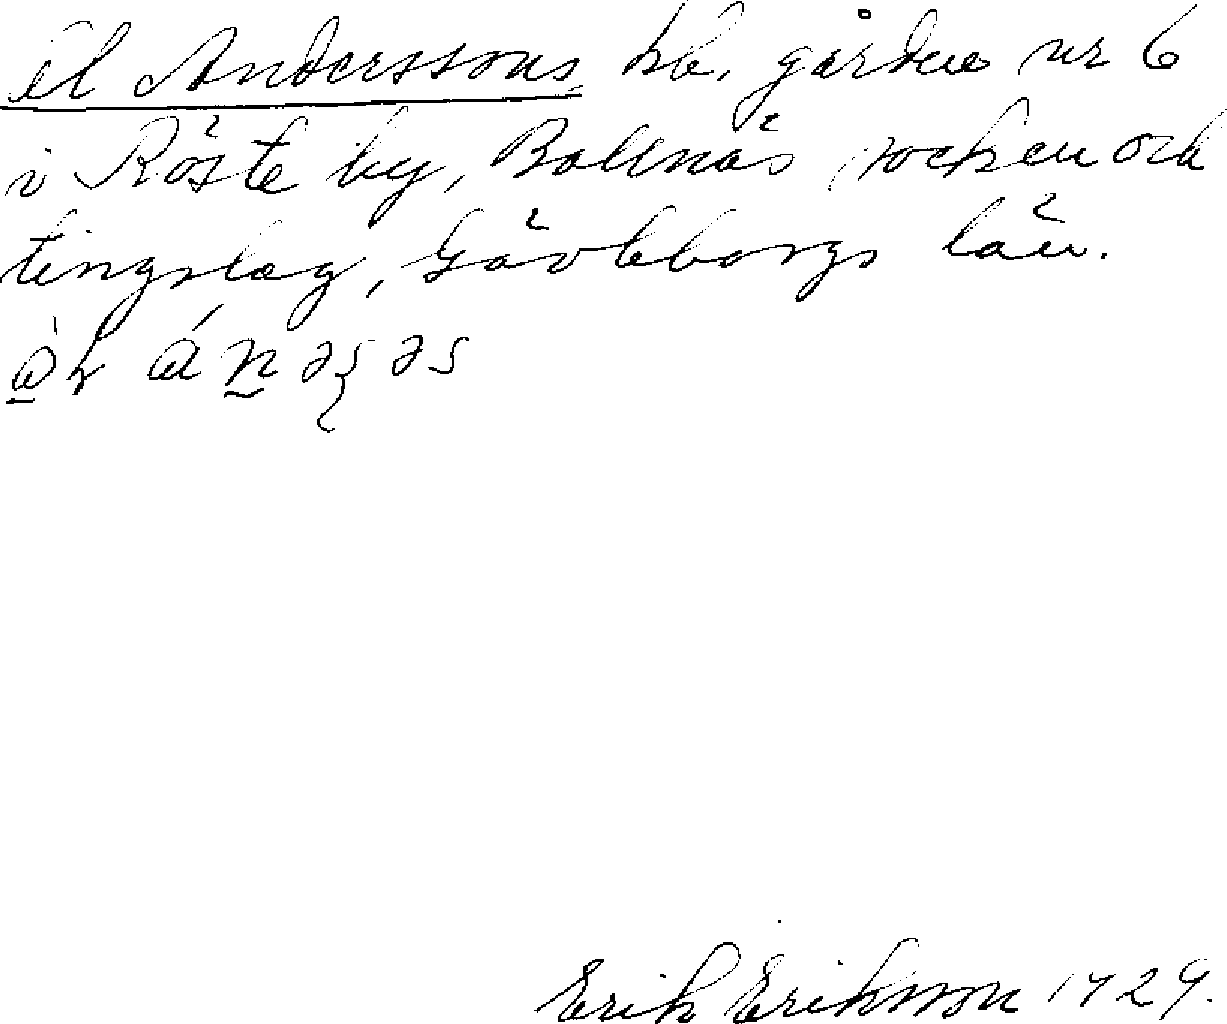 Ol Anderssons, kb. gården nr 6
i Röste by, Bollnäs socken och
tingslag, Gävleborgs län.
Erik Eriksson 1929.